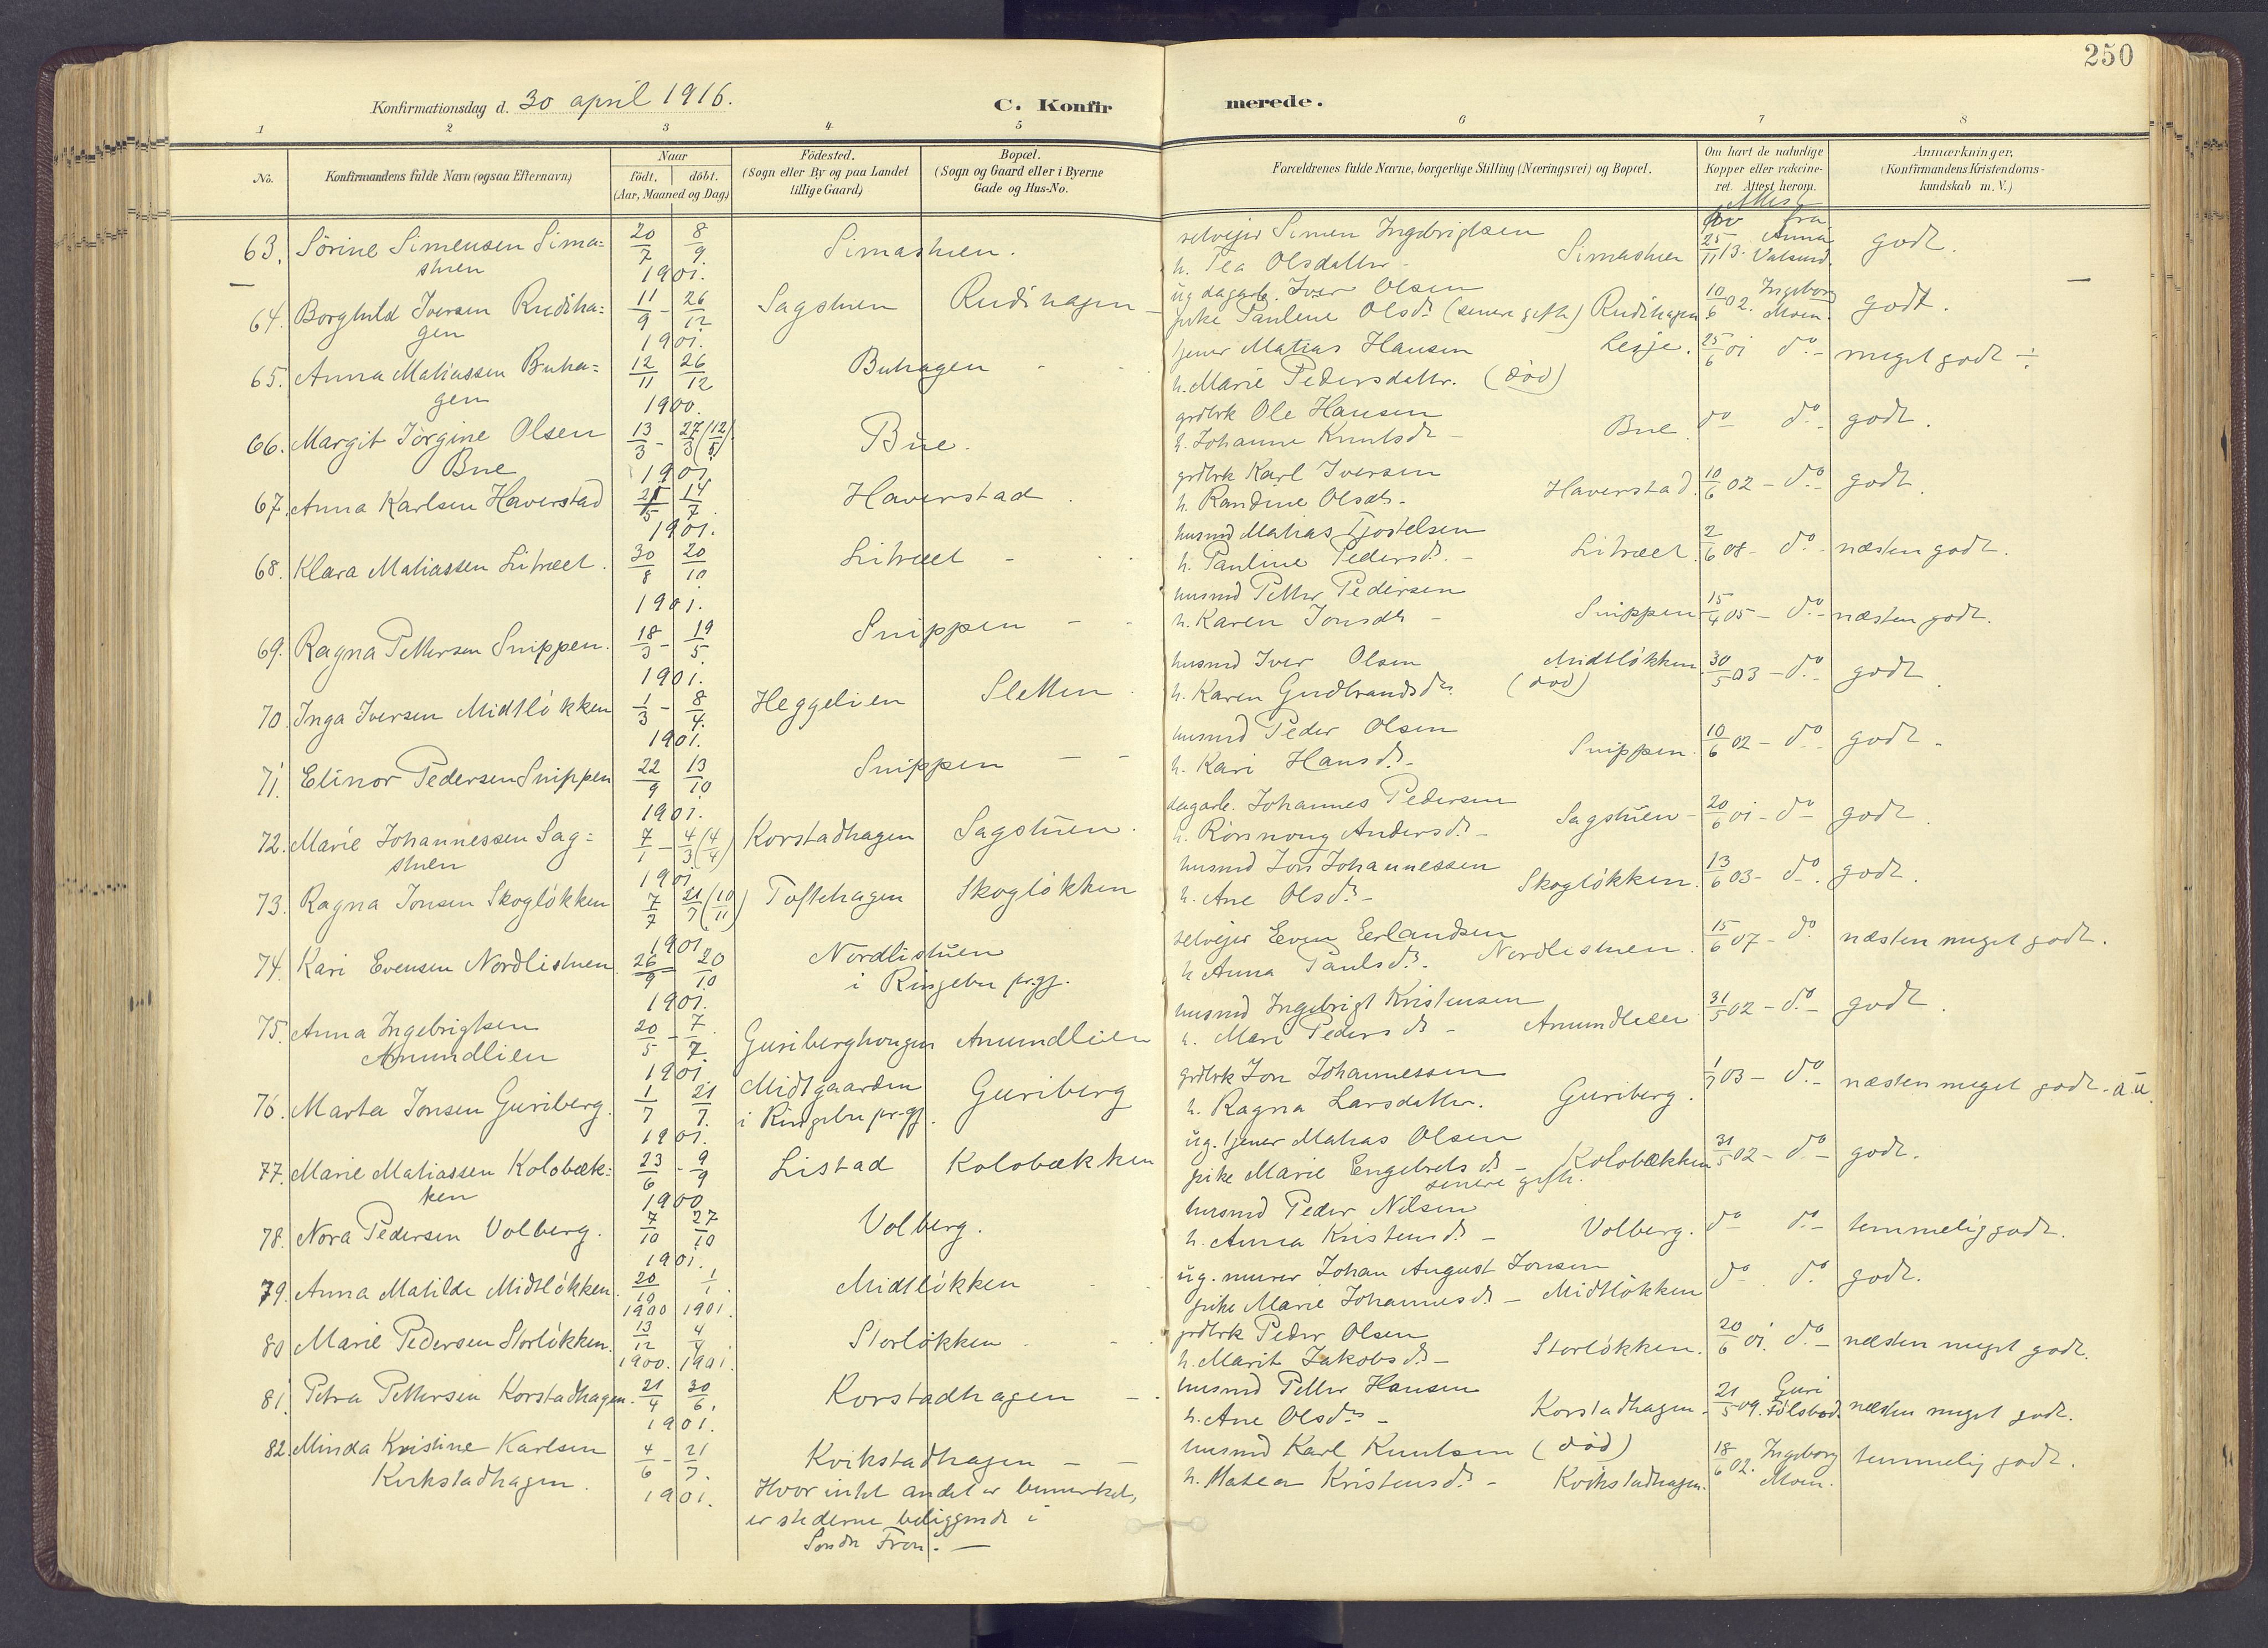 250
Konfirmationsdag d. 30 april 1916.
C. Konfirmerede.
1 2 3 4 5 6 7 8
No.
Konfirmandens fulde Navn (ogsaa Efternavn)
Naar
födt. döbt.
(Aar, Maaned og Dag)
Födested.
(Sogn eller By og paa Landet
tillige Gaard)
Bopæl.
(Sogn og Gaard eller i Byerne
Gade og Hus-No.
Forældrenes fulde Navne, borgerlige Stilling (Næringsvei) og Bopæl.
Om havt de naturlige
Kopper eller vakcine-
ret. Attest herom.
Anmærkninger,
(Konfirmandens Kristendoms-
kundskab m. V.)
63. Sörine Simensen Sima= 20/7 8/9 Simastuen. selveier Simen Ingebrigtsen Attest fra
stuen 1901. h. Tea Olsdatter - Simastuen 25/11 13. Anna Valsund. godt.
64. Borghild Iversen Rudiha= 11/9 - 26/12 Sagstuen Rudihagen ug dagarb. Iver Olsen 10/6 02. Ingeborg Moen. godt.
gen 1901. pike Pauline Olsd. (senere gift) Rudihagen
65. Anna Matiassen Buha= 12/11 26/12 Buhagen tjener Matias Hansen Lesje. 25/6 01 do.- meget godt ÷
gen 1900. h. Marie Pedersdatter. (död)
66. Margit Jörgine Olsen 13/3 - 27/3 (12/5) Bue. grdbrk Ole Hansen
Bue 1901 h. Johanne Knutsd - Bue. do do.- godt.
67. Anna Karlsen Haverstad 21/5 14/7 Haverstad. grdbrk Karl Iversen
1901. h. Randine Olsd. - Haverstad. 10/6 02 - do.- godt.
68. Klara Matiassen Litræet. 30/8 20/10 Litræet - husmd Matias Tjostelsen
1901. h. Pauline Pedersd. - Litræet. 2/6 08 - do.- næsten godt.
69. Ragna Pettersen Snippen. 18/3 - 19/5 Snippen - - husmd Petter Pedersen
1901. h. Karen Jonsd. - Snippen 15/4 05 - do.- næsten godt.
70. Inga Iversen Midtlökken 1/3 - 8/4. Heggelien Sletten. husmd Iver Olsen Midtlökken. 30/5 03 - do.- godt.
1901. h. Karen Gudbrandsd. (död)
71. Elinor Pedersen Snippen 22/9 13/10 Snippen - - husmd Peder Olsen
1901. h. Kari Hansd. - Snippen. 10/6 02 - do.- godt.
72. Marie Johannessen Sag= 7/1 - 4/3 (4/4) Korstadhagen Sagstuen. dagarb. Johannes Pedersen
stuen 1901 h. Rönnaug Andersd. - Sagstuen - 20/6 01 - do - godt.
73. Ragna Jonsen Skoglökken 7/7 21/7 (10/11) Toftehagen Skoglökken husmd Jon Johannessen
1901 h. Ane Olsd. - Skoglökken. 13/6 03 - do.- godt.
74. Kari Evensen Nordlistuen 26/9 20/10 Nordlistuen selveier Even Erlandsen
1901. i Ringebu prgj. h Anna Paulsd. - Nordlistuen. 15/6 07 - do næsten meget godt.
75. Anna Ingebrigtsen 20/5 - 7/7. Guriberghougen Amundlien husmd Ingebrigt Kristensen
Amundlien 1901. h. Mari Pedersd - Amundlien 31/5 02 - do.- godt.
76. Marta Jonsen Guriberg. 1/7 21/7. Midtgaarden Guriberg grdbrk Jon Johannessen
1901. i Ringebu prgj. h. Ragna Larsdatter. Guriberg. 1/7 03 - do.- næsten meget godt.
77. Marie Matiassen Kolobæk= 23/6 - 9/9 Listad Kolobækken ug. tjener Matias Olsen
ken 1900 pike Marie Engebretsd. - senere gift. Kolobækken 31/5 02 - do - godt.
78. Nora Pedersen Volberg. 7/10 27/10 Volberg. husmd Peder Nilsen
1901. h. Anna Kristensd. - Volberg. do do.- temmelig godt.
79. Anna Matilde Midtlökken. 20/10 1/1. Midtlökken ug. murer Johan August Jonsen
1900 1901. pike Marie Johannesd. - Midtlökken do do godt.
80 Marie Pedersen Storlökken. 13/12 4/4. Storlökken grdbrk Peder Olsen
1900. 1901. h. Marit Jakobsd. - Storlökken. 20/6 01. do - næsten meget godt.
81. Petra Pettersen Korstadhagen. 21/4 30/6. Korstadhagen - husmd Petter Hansen
1901. h. Ane Olsd. - Korstadhagen - 21/5 09. Guri Fölsbad. næsten meget godt.
82. Minda Kristine Karlsen 4/6 - 21/7. Kvikstadhagen - - husmd Karl Knutsen (död)
Kvikstadhagen. 1901. h. Matea Kristensd. - Kvikstadhagen. 18/6 02. Ingeborg Moen. temmelig godt.
Hvor intet andet er bemerket,
er stederne beliggende i
Söndre Fron. -